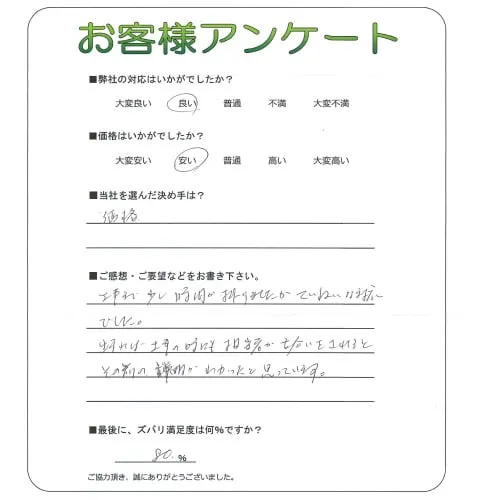 お客様アンケート
■弊社の対応はいかがでしたか？
大変良い 良い 普通 不満 大変不満
■価格はいかがでしたか？
大変安い 安い 普通 高い 大変高い
■当社を選んだ決め手は？
価格
■ご感想・ご要望などをお書き下さい。
工事で少し時間が掛りましたがていねいな対応
でした。
出来れば工事の時にも担当者が立合いをされると
その別の説明がわかったと思っています。
■最後に、ズバリ満足度は何%ですか？
80. %
ご協力頂き、誠にありがとうございました。